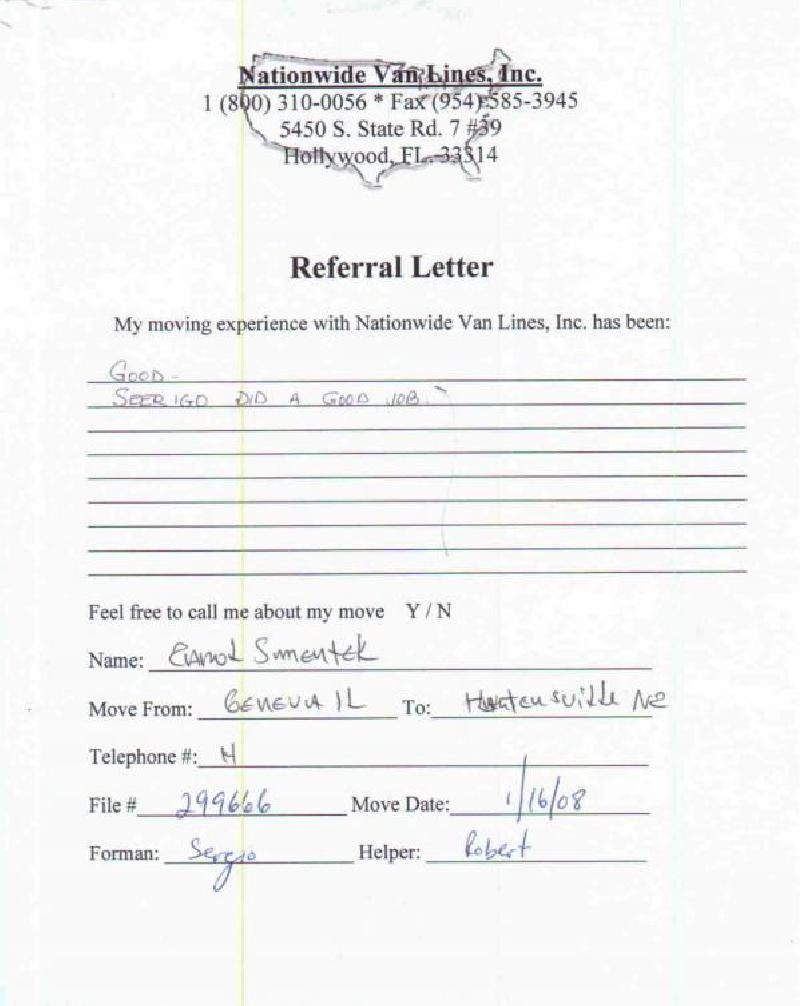 Nationwide Van Lines, Inc.
1 (800) 310-0056 * Fax (954) 585-3945
5450 S. State Rd. 7 #39
Hollywood, FL 33314
Referral Letter
My moving experience with Nationwide Van Lines, Inc. has been:
GOOD -
SEERIGO DID A GOOD JOB.
Feel free to call me about my move Y / N
Name:
Move From: GENEVA IL To:
Telephone #: N
File # 299666 Move Date: 1/16/08
Forman: Sergio Helper: Robert